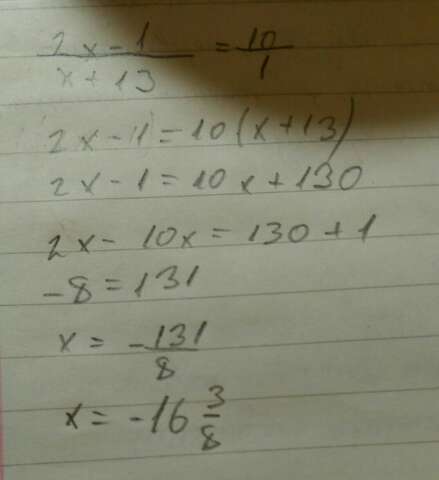 2x-1/x+13 = 10/1
2x-1=10(x+13)
2x-1=10x+130
2x-10x=130+1
-8=131
x = -131/8
x = -16 3/8